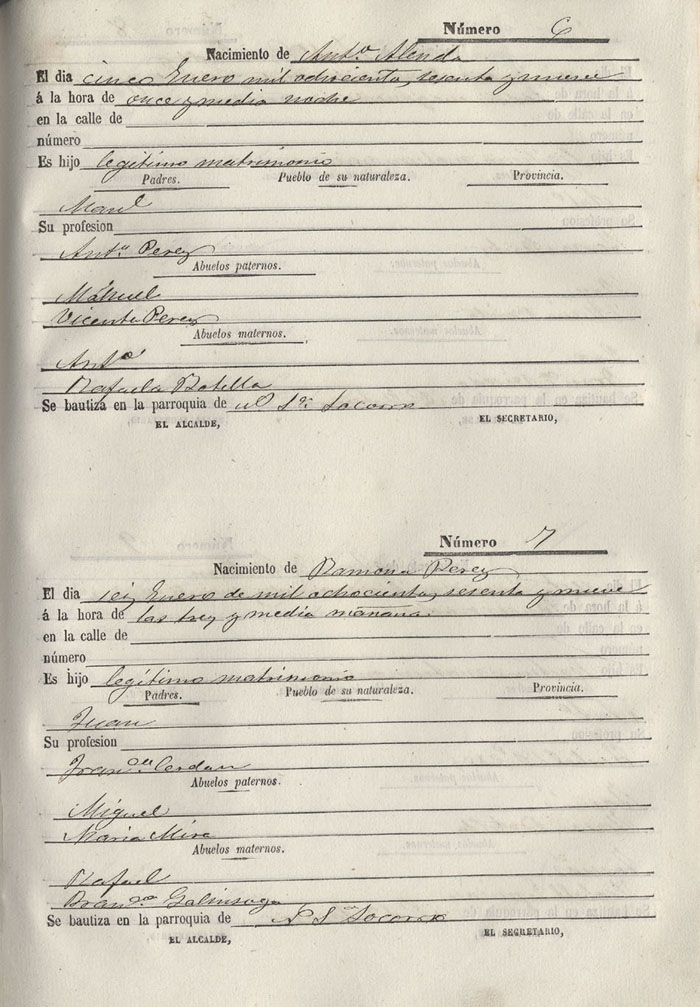 Número 6
Nacimiento de Antº Alenda
El dia cinco Enero mil ochocientos sesenta y nueve
á la hora de once y media noche
en la calle de
número
Es hijo legítimo matrimonio
Padres. Pueblo de su naturaleza. Provincia.
Manl
Su profesion
Antª Perez
Abuelos paternos.
Manuel
Vicenta Perez
Abuelos maternos.
Antº
Rafaela Botella
Se bautiza en la parroquia de Socorro
EL ALCALDE, EL SECRETARIO,
Número 7
Nacimiento de Ramona Perez
El dia seis Enero de mil ochocientos sesenta y nueve
á la hora de las tres y media mañana.
en la calle de
número
Es hijo legítimo matrimonio
Padres. Pueblo de su naturaleza. Provincia.
Juan
Su profesion
Cerdan
Abuelos paternos.
Miguel
Maria Mira
Abuelos maternos.
Rafael
Galinsoga
Se bautiza en la parroquia de N S Socorro
EL ALCALDE, EL SECRETARIO,